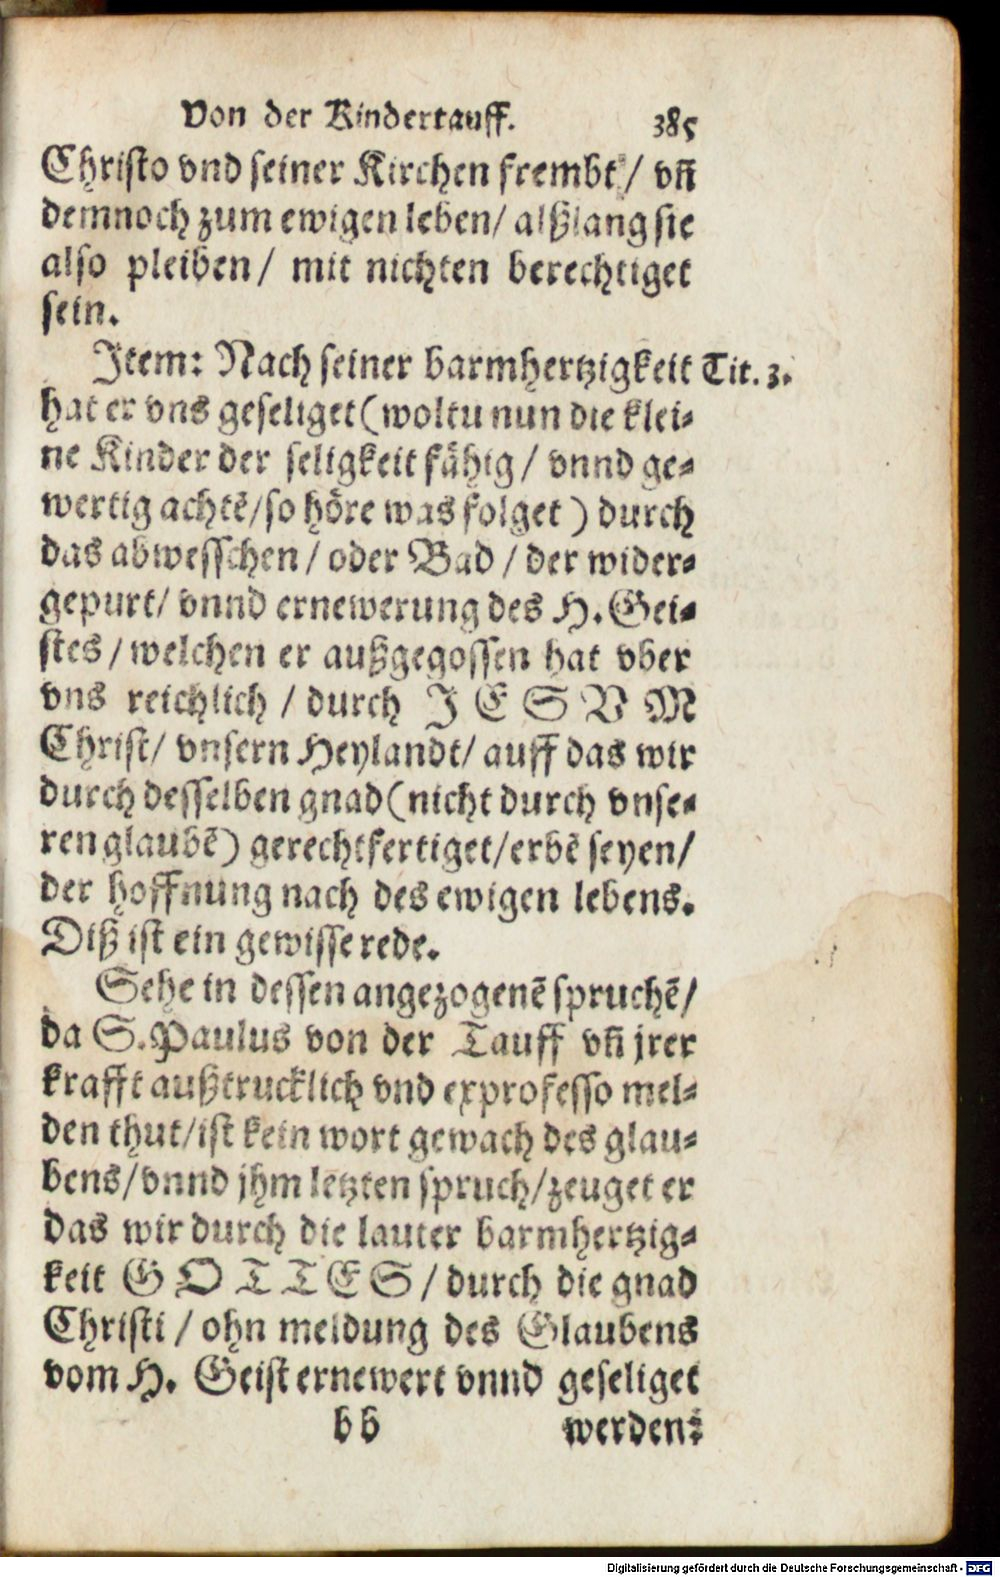 Von der Kindertauff. 385
Christo vnd seiner Kirchen frembt/ vñ
demnoch zum ewigen leben/ alßlang sie
also pleiben/ mit nichten berechtiget
sein.
Item: Nach seiner barmhertzigkeit Tit. 3.
hat er vns geseliget (woltu nun die klei-
ne Kinder der seligkeit fähig/ vnnd ge-
wertig achtẽ/so höre was folget) durch
das abwesschen/ oder Bad/ der wider-
gepurt/ vnnd ernewerung des H. Gei-
stes/ welchen er außgegossen hat vber
vns reichlich/ durch JESVM
Christ/ vnsern Heylandt/ auff das wir
durch desselben gnad (nicht durch vnse-
ren glaubẽ) gerechtfertiget/erbẽ seyen/
der hoffnung nach des ewigen lebens.
Diß ist ein gewisse rede.
Sehe in dessen angezogenẽ spruchẽ/
da S. Paulus von der Tauff vñ jrer
krafft außtrucklich vnd exprofesso mel-
den thut/ist kein wort gewach des glau-
bens/vnnd jhm letzten spruch/zeuget er
das wir durch die lauter barmhertzig-
keit GOTTES/ durch die gnad
Christi/ ohn meldung des Glaubens
vom H. Geist ernewert vnnd geseliget
bb werden:
Digitalisierung gefördert durch die Deutsche Forschungsgemeinschaft - DFG